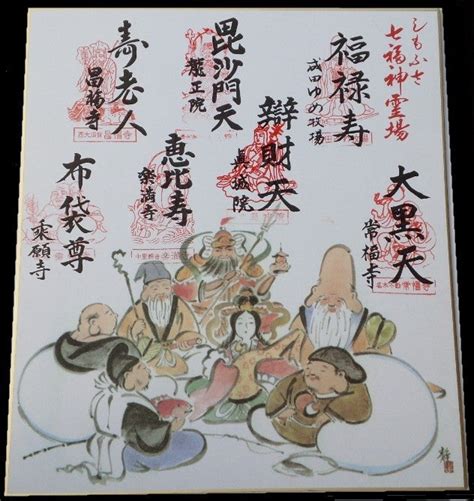 しもふさ
七福神霊場
福禄寿
成田ゆめ牧場
大黒天
常福寺
辯財天
真城院
毘沙門天
龍正院
恵比寿
楽満寺
寿老人
昌福寺
布袋尊
乗願寺